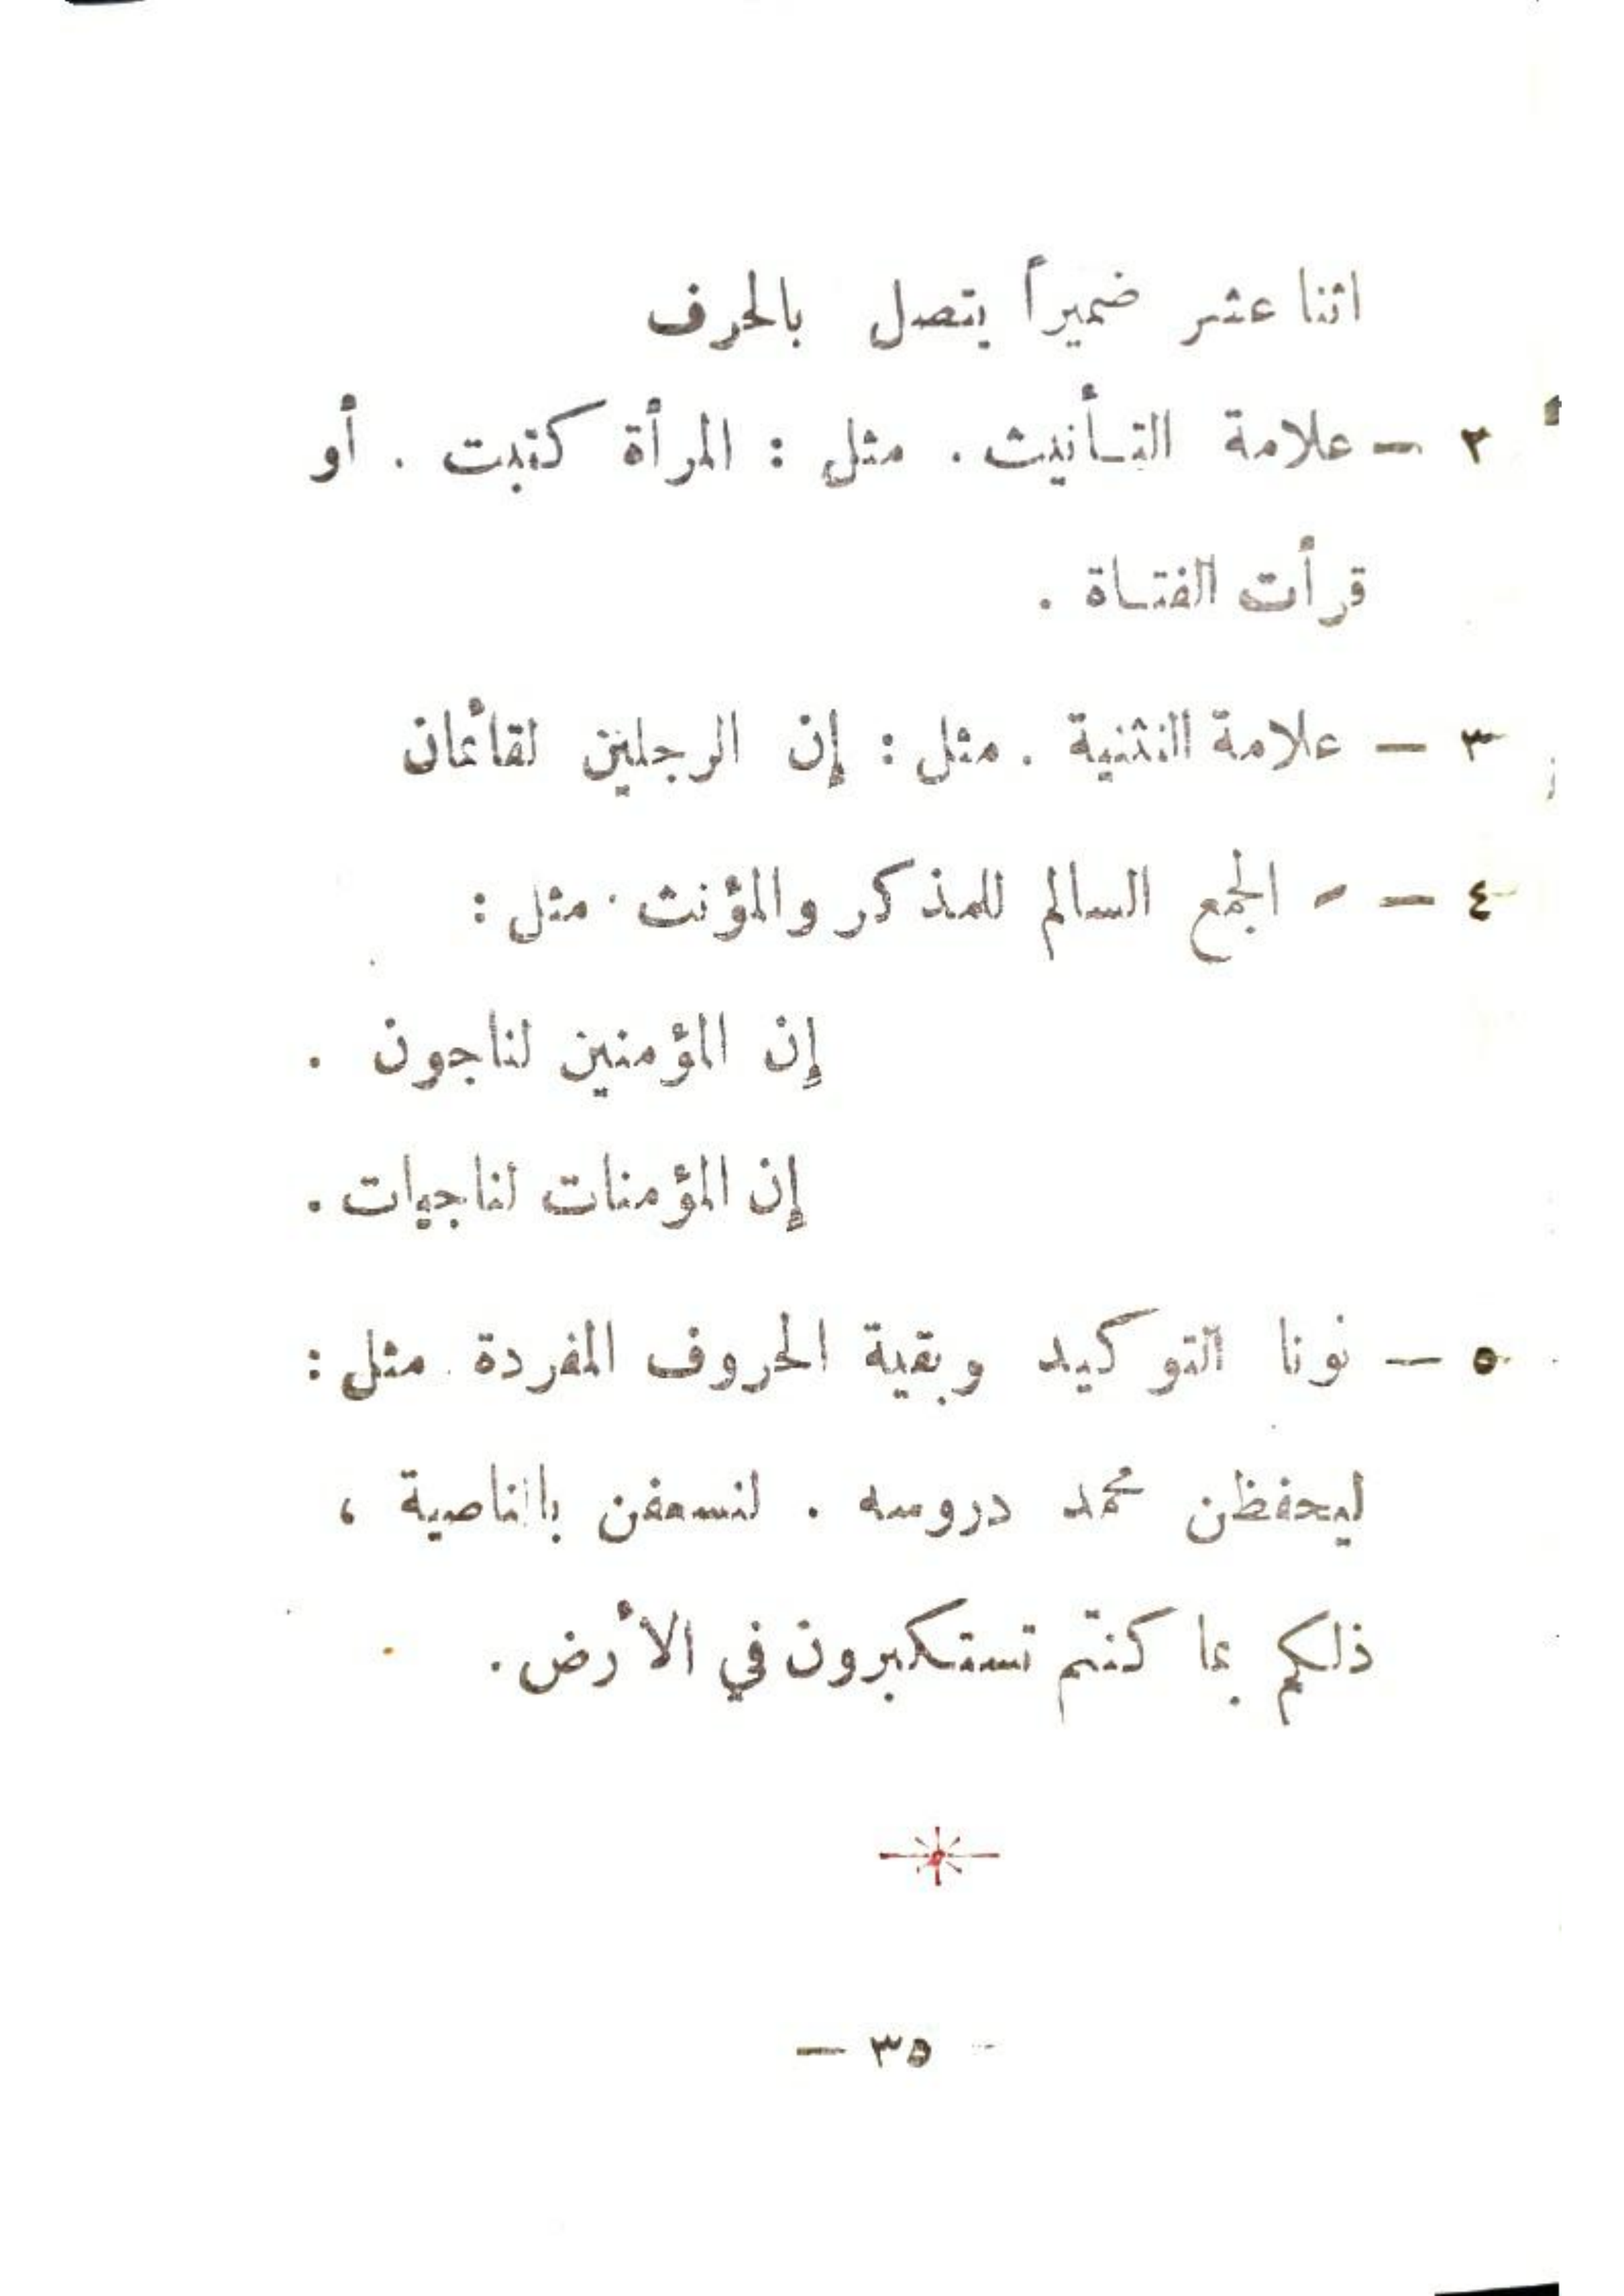 اثنا عشر ضميراً يتصل بالحرف
٢ – علامة التأنيث . مثل : المرأة كتبت . أو
قرأت الفتاة .
٣ – علامة التثنية . مثل : إن الرجلين لقائمان
٤ – - الجمع السالم للمذكر والمؤنث . مثل :
إن المؤمنين لناجون .
إن المؤمنات لناجيات .
٥ – نونا التوكيد وبقية الحروف المفردة . مثل :
ليحفظن محمد دروسه . لنسعفن بالناصية ،
ذلكم بما كنتم تستكبرون في الأرض .
– ٣٥ –